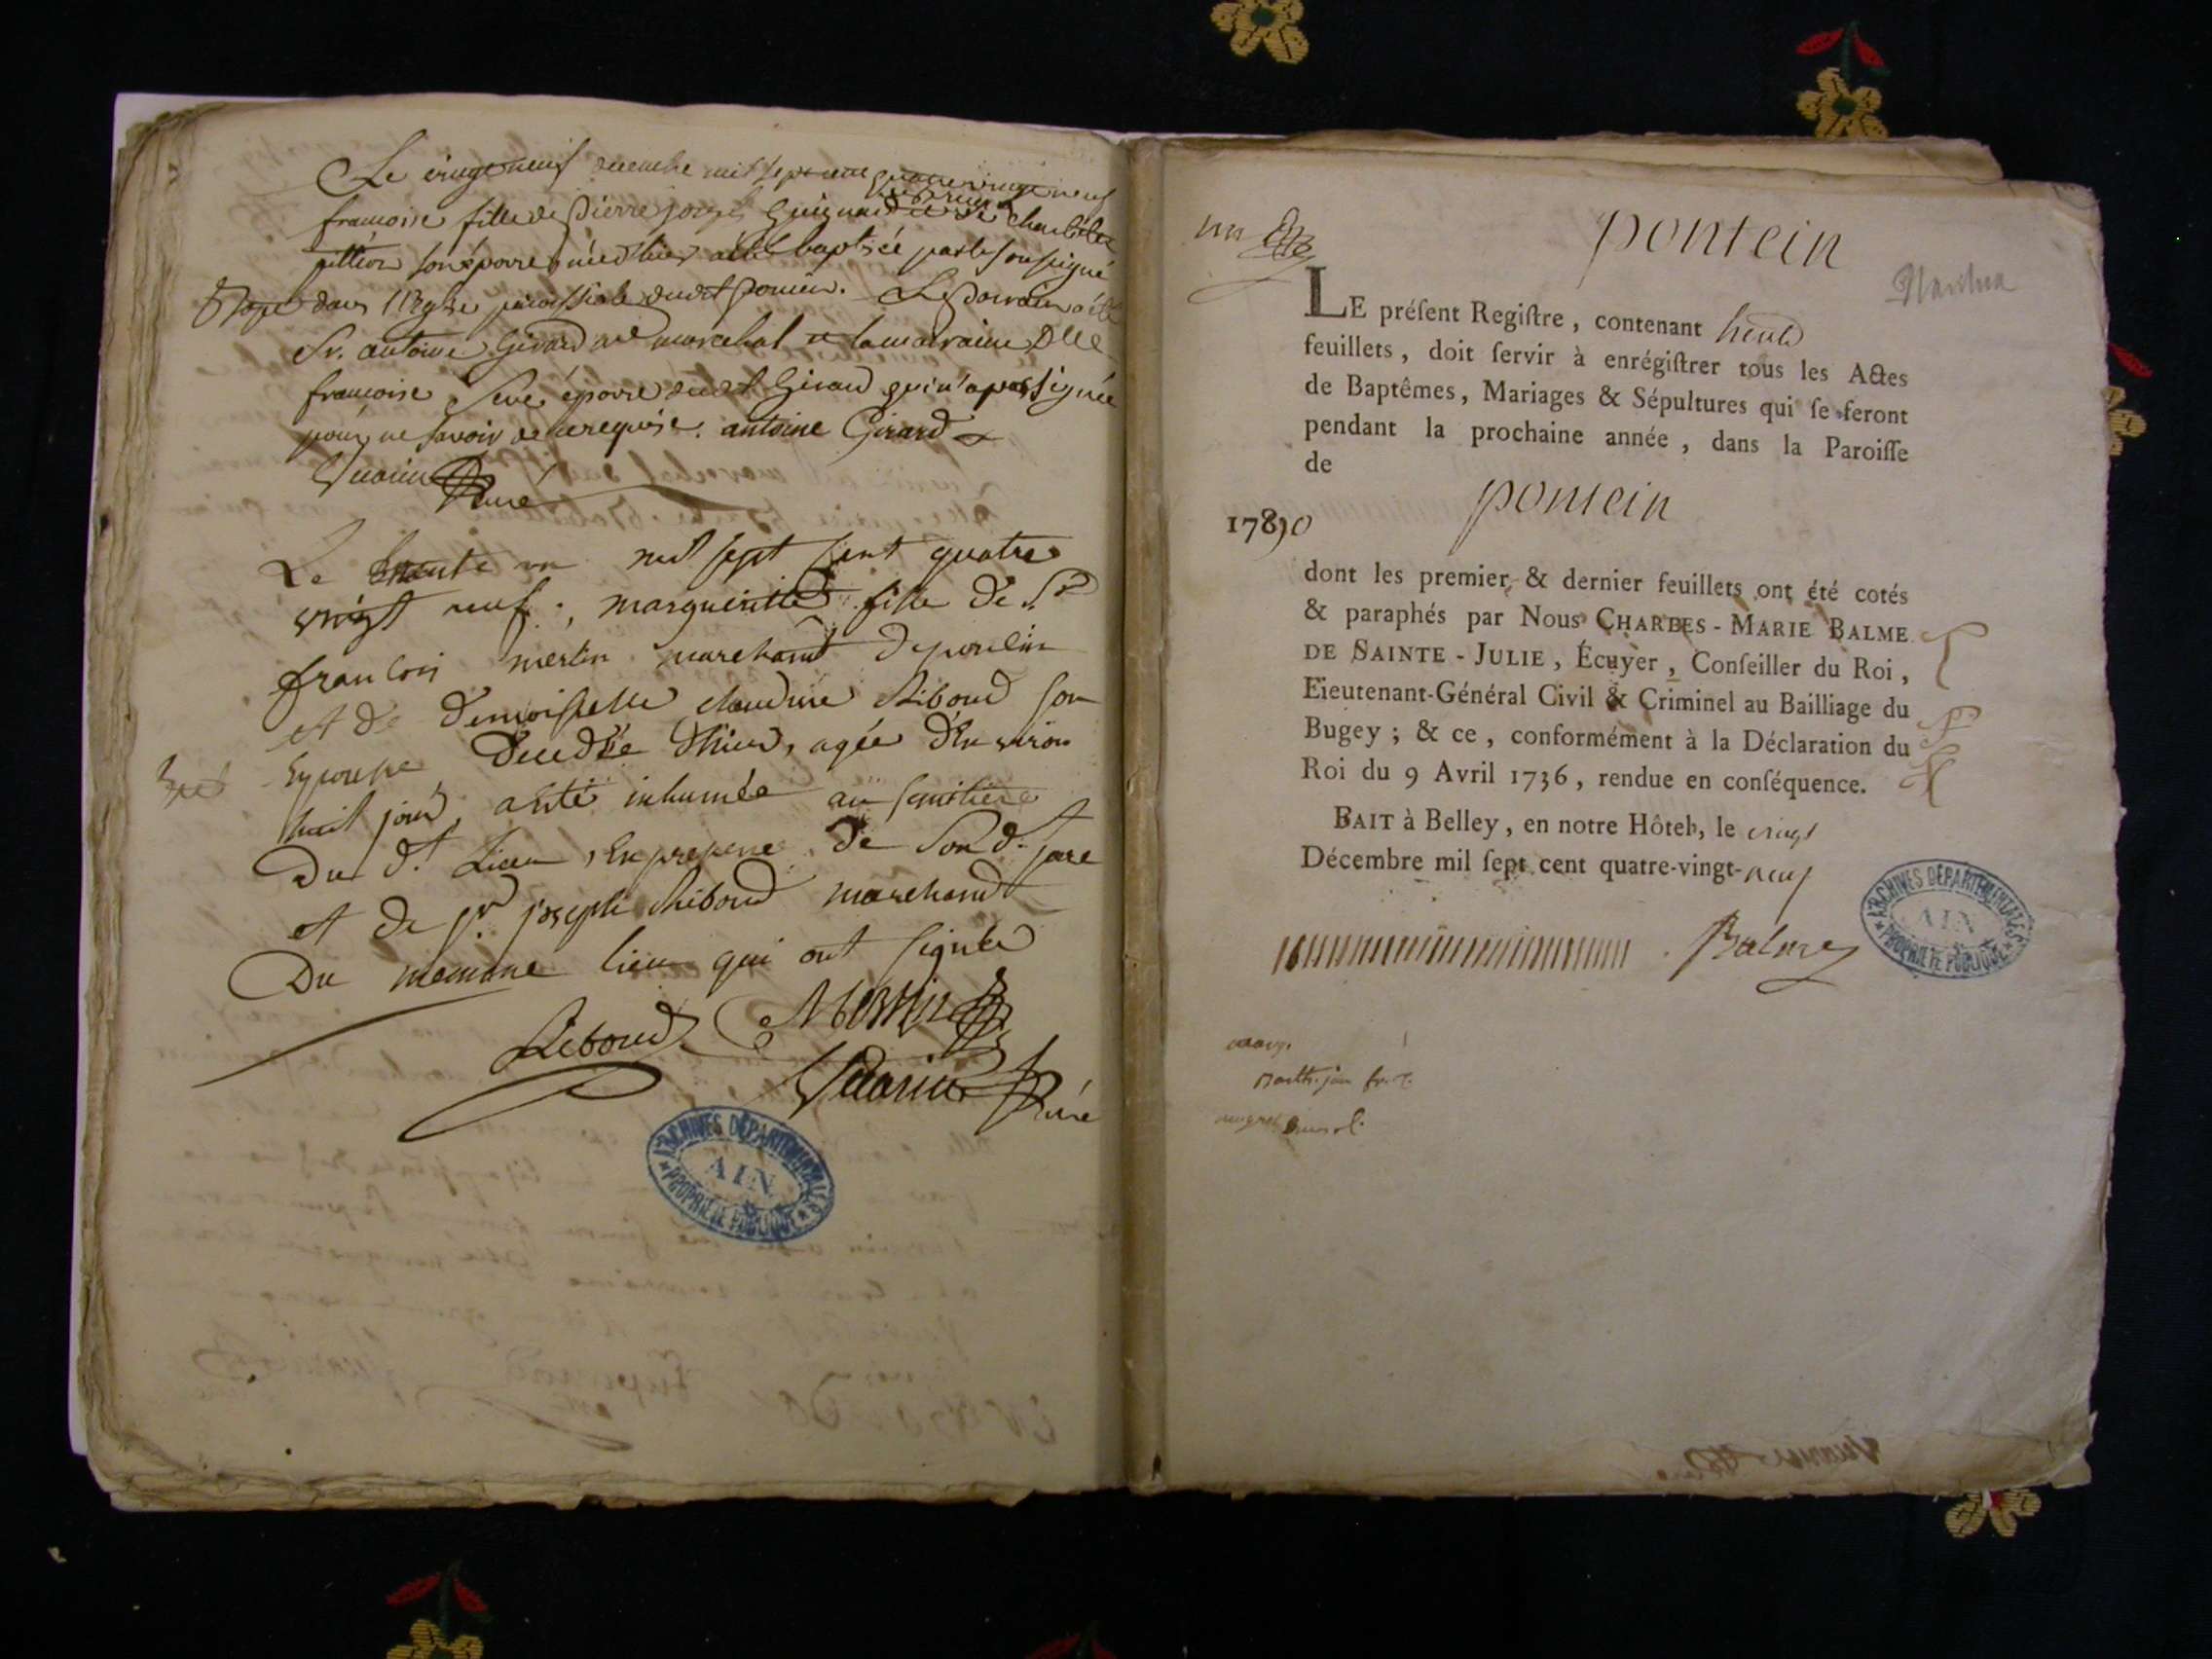 Le vingt neuf decembre mil sept cent quatre vingt neuf
francoise fille de Pierre joseph Guignard et de
son epouse, née d'hier a été baptisée par le soussigné
Bapt dans l'Eglise paroissiale dudit Poncin. Le Parrain a été
Sr. antoine Girard md marechal et la marraine Dlle
francoise Seve épouse dudit Girard qui n'a pas signée
pour ne savoir de ce requise. antoine Girard
curé
Le trente un mil sept cent quatre
vingt neuf, margueritte fille de Sr
francois merlin marchand de poncin
et de demoiselle claudine Riboud son
Epouse decedée d'hier, agée d'environ
huit jour, a été inhumée au semitiere
Du d.t Lieu, En presence de Son d. pere
et de sr joseph Riboud marchand
Du meme lieu qui ont signée
Riboud Merlin
curé
ARCHIVES DÉPARTEMENTALES
AIN
PROPRIÉTÉ PUBLIQUE
un
pontein
LE préſent Regiſtre, contenant
feuillets, doit ſervir à enrégiſtrer tous les Actes
de Baptêmes, Mariages & Sépultures qui ſe feront
pendant la prochaine année, dans la Paroiſſe
de
pontein
1790
dont les premier & dernier feuillets ont été cotés
& paraphés par Nous CHARLES-MARIE BALME
DE SAINTE-JULIE, Écuyer, Conſeiller du Roi,
Lieutenant-Général Civil & Criminel au Bailliage du
Bugey; & ce, conformément à la Déclaration du
Roi du 9 Avril 1736, rendue en conſéquence.
FAIT à Belley, en notre Hôtel, le vingt
Décembre mil ſept cent quatre-vingt-neuf
Balme
ARCHIVES DÉPARTEMENTALES
AIN
PROPRIÉTÉ PUBLIQUE